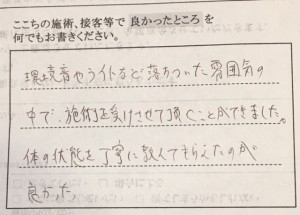 ここちの施術、接客等で 良かったところ を
何でもお書きください。
環境音やライトなど落ちついた雰囲気の
中で、施術を受けさせて頂くことができました。
体の状態を丁寧に説んでもらえたのが
良かった